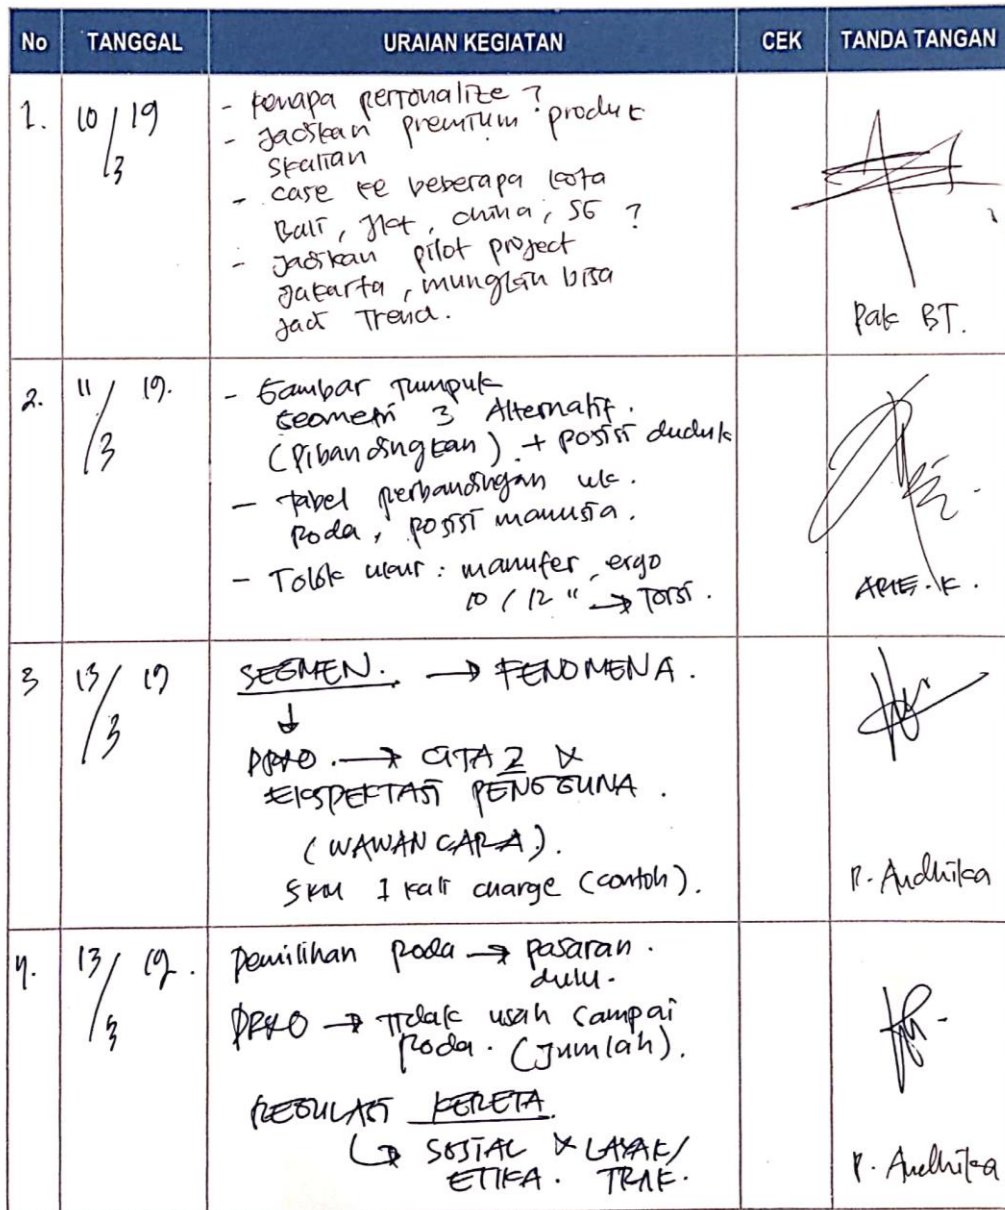 No TANGGAL URAIAN KEGIATAN CEK TANDA TANGAN
1. 10/3 19
- Kenapa personalize ?
- Jadikan premium produk
skalian
- case ke beberapa kota
Bali, Jkt, china, SG ?
- Jadikan pilot project
Jakarta, mungkin bisa
jadi Trend.
Pak BT.
2. 11/3 19.
- Gambar Tumpuk
Geometri 3 Alternatif.
(Dibandingkan) + posisi duduk
- Tabel perbandingan uk.
Roda, posisi manusia.
- Tolok ukur : manufer, ergo
10 / 12 " → Torsi.
ARIE. K.
3 13/3 19
SEGMEN. → FENOMENA.
↓
DR&O. → CITA2 &
EKSPEKTASI PENGGUNA.
(WAWANCARA).
5 KM 1 kali charge (contoh).
P. Andhika
4. 13/3 19.
Pemilihan Roda → pasaran.
dulu.
DR&O → Tidak usah sampai
Roda. (Jumlah).
REGULASI KERETA
↳ SOSIAL & LAYAK/
ETIKA. TDAK.
P. Andhika